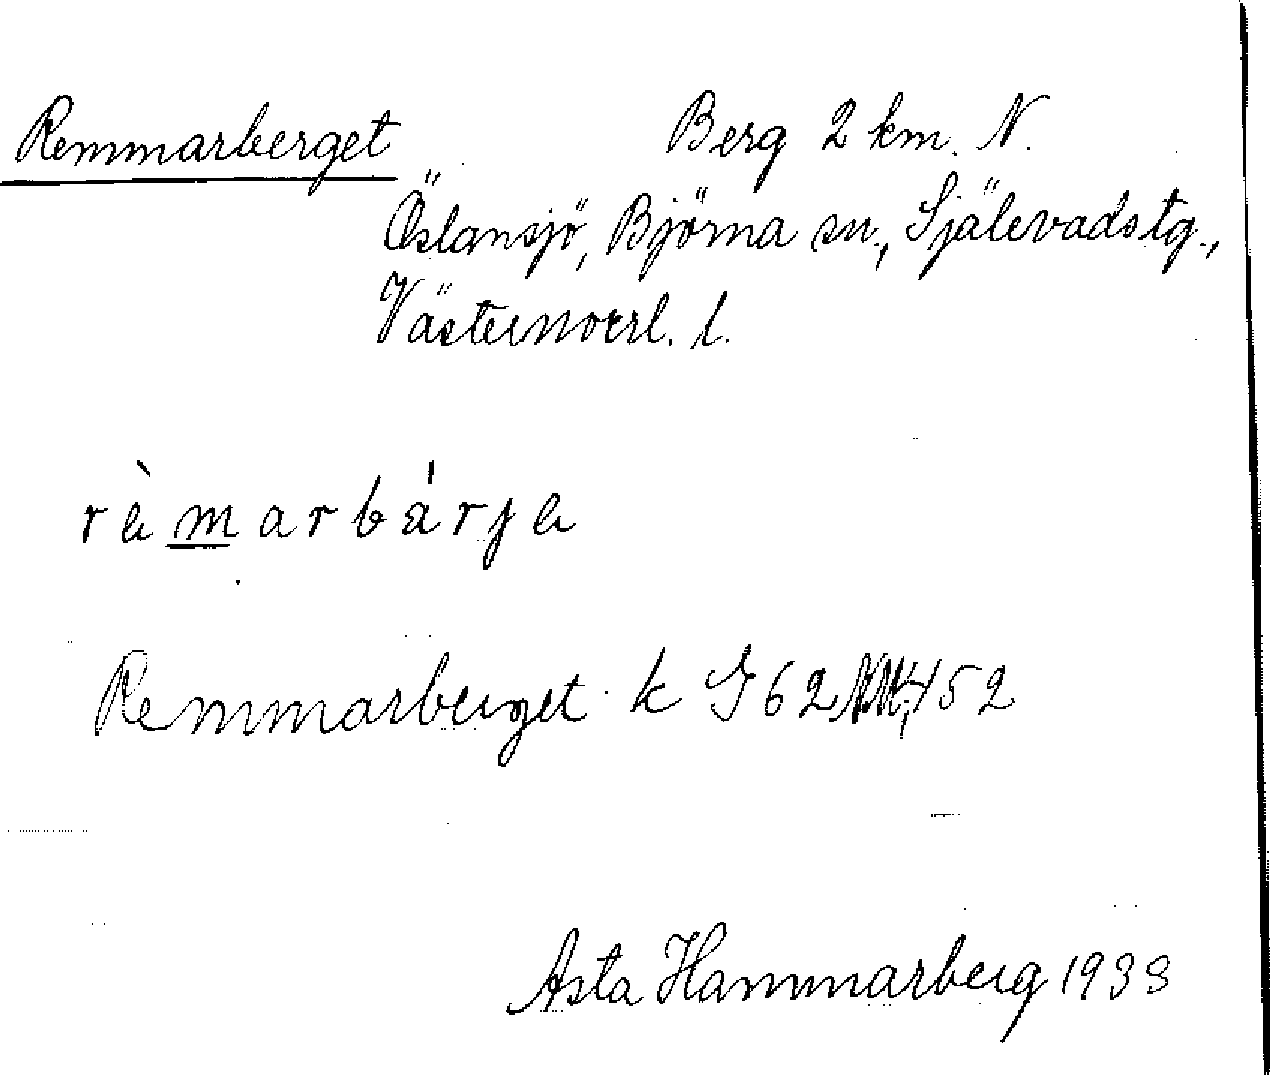 Remmarberget Berg 2 km. N.
Öslansjö, Björna sn., Själevads tg.,
Västernorrl. l.
rèmarbárje
Remmarberget k G 62 452
Asta Hammarberg 1938